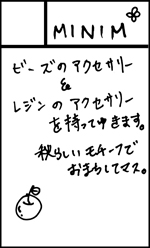 MINIM
ビーズのアクセサリー
&
レジンのアクセサリー
を持ってゆきます。
秋らしいモチーフで
おまちしてマス。